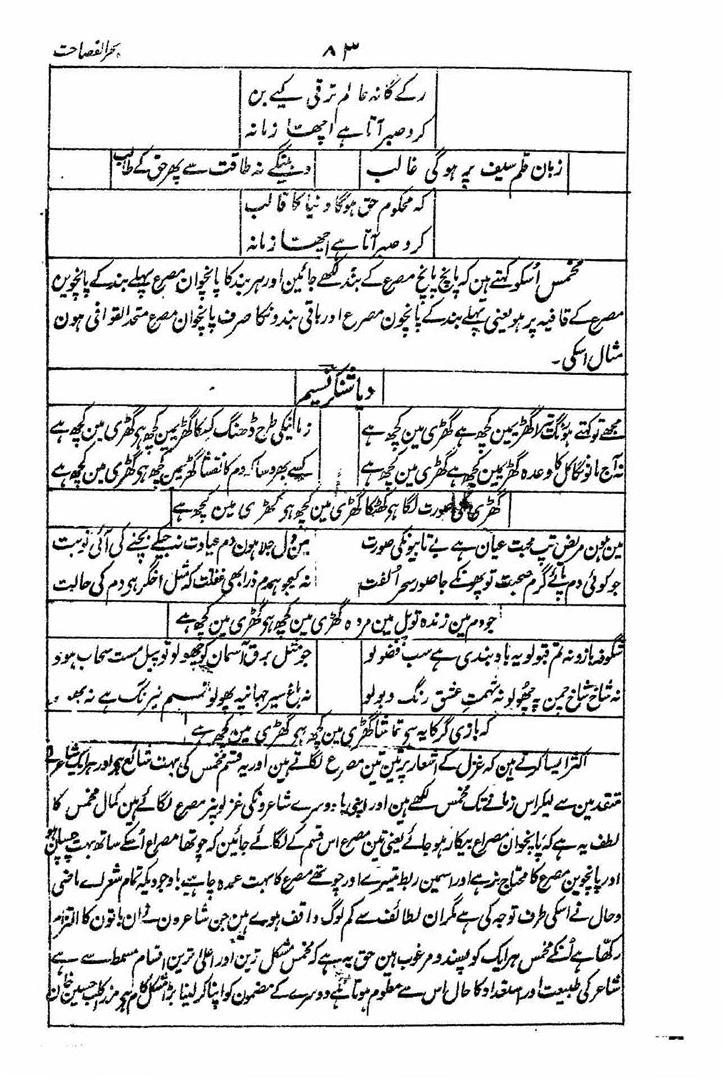 بحر الفصاحت
۸۳
رکے گا نہ عالم ترقی کیے بن
کرو صبر آتا ہے اچھا زمانہ
زبان قلم سیف پر ہوگی غالب
دبینگے نہ طاقت سے پھر حق کے طالب
کہ محکوم حق ہوگا دنیا کا قالب
کرو صبر آتا ہے اچھا زمانہ
مخمس اُسکو کہتے ہین کہ پانچ پانچ مصرع کے بند لکھے جائین اور ہر بند کا پانچوان مصرع پہلے بند کے پانچوین
مصرع کے قافیہ پر ہو یعنی پہلے بند کے پانچون مصرع اور باقی بندونکا صرف پانچوان مصرع متحد القوافی ہون
مثال اسکی۔
دیا شنکر نسیم
مجھے تو کہتے ہو گت تیرا گھڑیمین کچھ ہے گھڑی مین کچھ ہے
زمانیکی طرح ڈھنگ کسکا گھڑیمین کچھ ہی گھڑی مین کچھ ہے
نہ آج مانو نگا کل کا وعدہ گھڑیمین کچھ ہے گھڑی مین کچھ ہے
کسے بھروسا دم کا نقشا گھڑیمین کچھ ہی گھڑی مین کچھ ہے
گھڑی کی صورت لگا ہی کھٹکا گھڑی مین کچھ ہی گھڑی مین کچھ ہے
مین ہون مریض تپ محبت عیان ہے بے تابیونکی صورت
مین دل جلا ہون دم عیادت نہ جیکے بچنے کی آئی نوبت
جو کوئی دم پائے گرم صحبت تو پھونکے جا صور سحر الفت
نہ کیجو ہمدم ذرا بھی غفلت کہ مثل اخگر ہی دم کی حالت
جو دم مین زندہ تو پل مین مردہ گھڑی مین کچھ ہی گھڑی مین کچھ ہے
شگوفہ بازو نہ تم قبولو یہ باد بندی ہے سب فضولو
جو مثل برق آسمان کو چھولو تو پیل مست سحاب ہو لو
نہ شاخ شاخ چمن پہ جھولو نہ تہمت عشق رنگ دبولو
نہ باغ سیر جہانپہ پھولو نسیم نیرنگ ہے نہ بھولو
کہ بازی گر کا یہ ہی تماشا گھڑی مین کچھ ہی گھڑی مین کچھ ہے
اکثر ایسا کرتے ہین کہ غزل کے اشعار پر تین تین مصرع لگاتے ہین اور یہ قسم مخمس کی بہت شائع ہی اور ہر ایک شاعر نے
متقدمین سے لیکر اس زمانے تک مخمس لکھے ہین اور اپنی یا دوسرے شاعرونکی غزلونپر مصرع لگائے ہین کمال مخمس کا
لطف یہ ہے کہ پانچوان مصراع بیکار نہو جائے یعنی تین مصرع اس قسم کے لگائے جائین کہ چوتھا مصراع اُنکے ساتھ بہت چسپان ہو
اور پانچوین مصرع کا محتاج نرہے اور اسمین ربط تیسرے اور چوتھے مصرع کا بہت عمدہ چاہیے باوجودیکہ تمام شعراے ماضی
وحال نے اسکی طرف توجہ کی ہے مگر ان لطائف سے کم لوگ واقف ہوے ہین جن شاعرون نے ان باتون کا التزام
رکھا ہے اُنکے مخمس ہر ایک کو پسند و مرغوب ہین حق یہ ہے کہ مخمس مشکل ترین اور اعلیٰ ترین اقسام مسمط سے ہے
شاعر کی طبیعت اور استعداد کا حال اس سے معلوم ہوتا ہے دوسرے کے مضمون کو اپنا کر لینا بڑا مشکل کام ہی مرزا کلب حسین خان